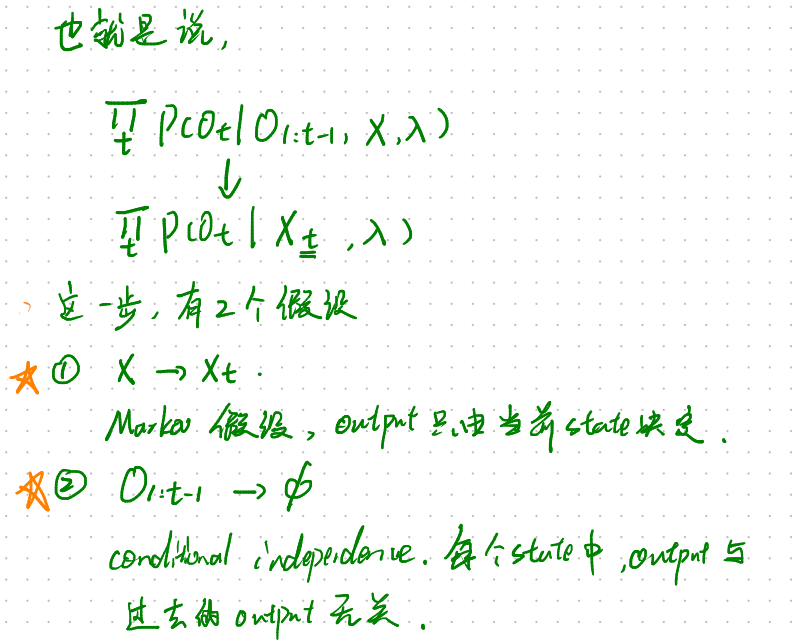 也就是说,
∏t P(Ot | O1:t-1, X, λ)
↓
∏t P(Ot | Xt, λ)
这一步, 有2个假设
① X → Xt.
Markov 假设, output 只由当前 state 决定.
② O1:t-1 → ϕ
conditional independence. 每个 state 中, output 与
过去的 output 无关.